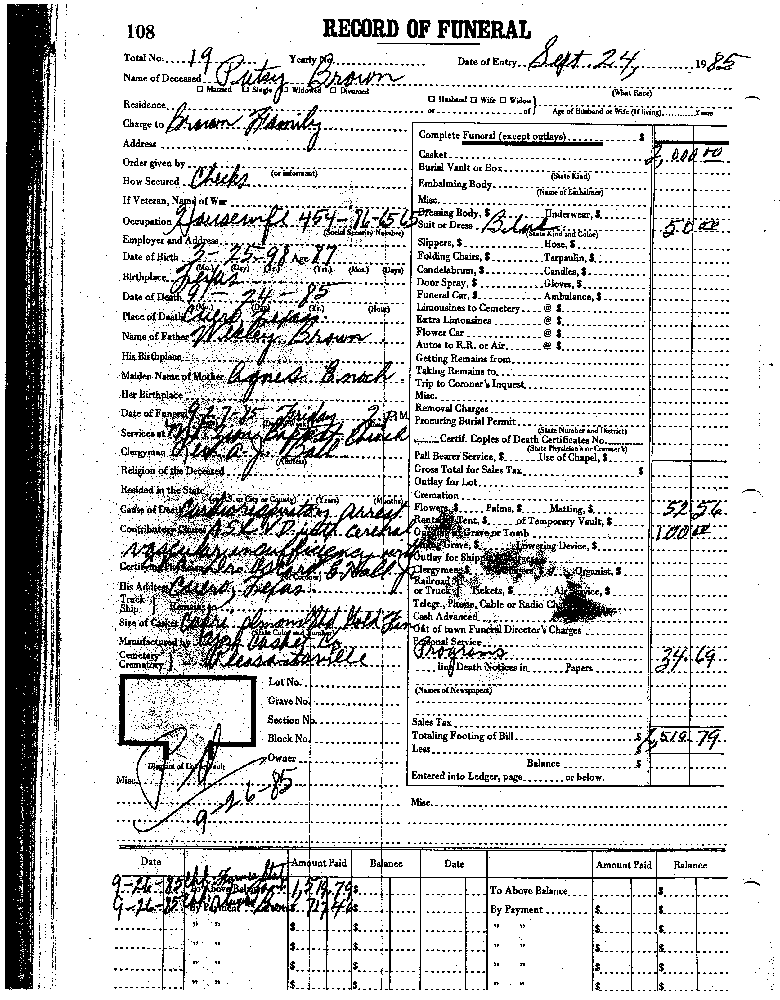 108 RECORD OF FUNERAL
Total No. 19 Yearly No. Date of Entry Sept. 24, 1985
Name of Deceased Patsy Brown
☐ Married ☐ Single ☐ Widowed ☐ Divorced (What Race)
Residence ☐ Husband ☐ Wife ☐ Widow } or of Age of Husband or Wife (If living) Years
Charge to Brown Family
Address
Order given by (or informant)
How Secured Checks
If Veteran, Name of War
Occupation Housewife
(Social Security Number)
Employer and Address
Date of Birth 3-25-98 Age 87
(Mo.) (Day) (Yr.) (Yrs.) (Mos.) (Days)
Birthplace Texas
Date of Death 9-24-85
(Hour)
Place of Death Cuero, Texas
Name of Father Wesley Brown
His Birthplace
Maiden Name of Mother Agnes Enoch
Her Birthplace
Date of Funeral 9-27-85 Friday 2 P.M.
Services at Zion Baptist Church
Clergyman Rev. A. J. Ball
(Address)
Religion of the Deceased
Resided in the State
(Years) (Months)
Cause of Death Cardiorespiratory arrest
Contributory Cause ASCVD with cerebral
vascular insufficiency
His Address Cuero, Texas
Truck
Ship.
Size of Casket
Manufactured by York Casket Co.
Cemetery
Crematory } Pleasantville
Lot No.
Grave No.
Section No.
Block No.
Owner
Misc.
9-26-85
Complete Funeral (except outlays) $
Casket 2,000 00
Burial Vault or Box
(State Kind)
Embalming Body
(Name of Embalmer)
Misc.
Dressing Body, $ Underwear, $
Suit or Dress 50 00
(State Kind and Color)
Slippers, $ Hose, $
Folding Chairs, $ Tarpaulin, $
Candelabrum, $ Candles, $
Door Spray, $ Gloves, $
Funeral Car, $ Ambulance, $
Limousines to Cemetery @ $
Extra Limousines @ $
Flower Car @ $
Autos to R.R. or Air @ $
Getting Remains from
Taking Remains to
Trip to Coroner's Inquest
Misc.
Removal Charges
Procuring Burial Permit
(State Number and District)
Certif. Copies of Death Certificates No.
(State Physician's or Coroner's)
Pall Bearer Service, $ Use of Chapel, $
Gross Total for Sales Tax $
Outlay for Lot
Cremation
Flowers, $ Palms, $ Matting, $ 52 56
Rental Tent, $ of Temporary Vault, $
Opening of Grave or Tomb 100 00
Lining Grave, $ Lowering Device, $
Outlay for Shipping
Clergyman, $ Organist, $
Railroad
or Truck } Tickets, $
Telegr., Phone, Cable or Radio
Cash Advanced
Out of town Funeral Director's Charges
Personal Service
Programs 34.69
Death Notices in Papers
(Names of Newspaper)
Sales Tax
Totaling Footing of Bill $
Less
Balance $
Entered into Ledger, page or below.
Misc.
Date Amount Paid Balance Date Amount Paid Balance
9-26-85 To Above Balance $ To Above Balance $
9-26-85 By Payment $ By Payment $ $
" " $ " " $
" " $ " " $
" " $ " " $